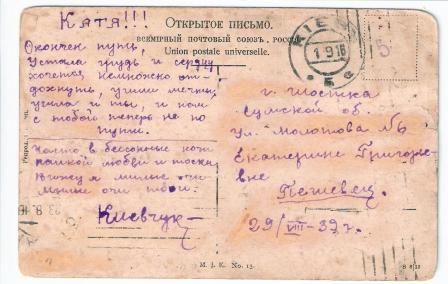 Катя!!!
ОТКРЫТОЕ ПИСЬМО.
ВСЕМІРНЫЙ ПОЧТОВЫЙ СОЮЗЪ, РОССІЯ
Union postale universelle.
Окончен путь,
Устала грудь и сердцу
хочется немножко от-
дохнуть, умчи мечты
умчи и ты, и нам
с тобой теперь не по
пути.
Часто в бессоные ночи
полной любви и тоски
Вижу я милые очи
милые очи твои.
Киевчук
KIEV
1 9 16
5
г. Шостка
Сумской об
ул. Молотова №6
Екатерине Григорье-
вне
29/VIII-39г.
23.8.16
M. J. K. No. 13.